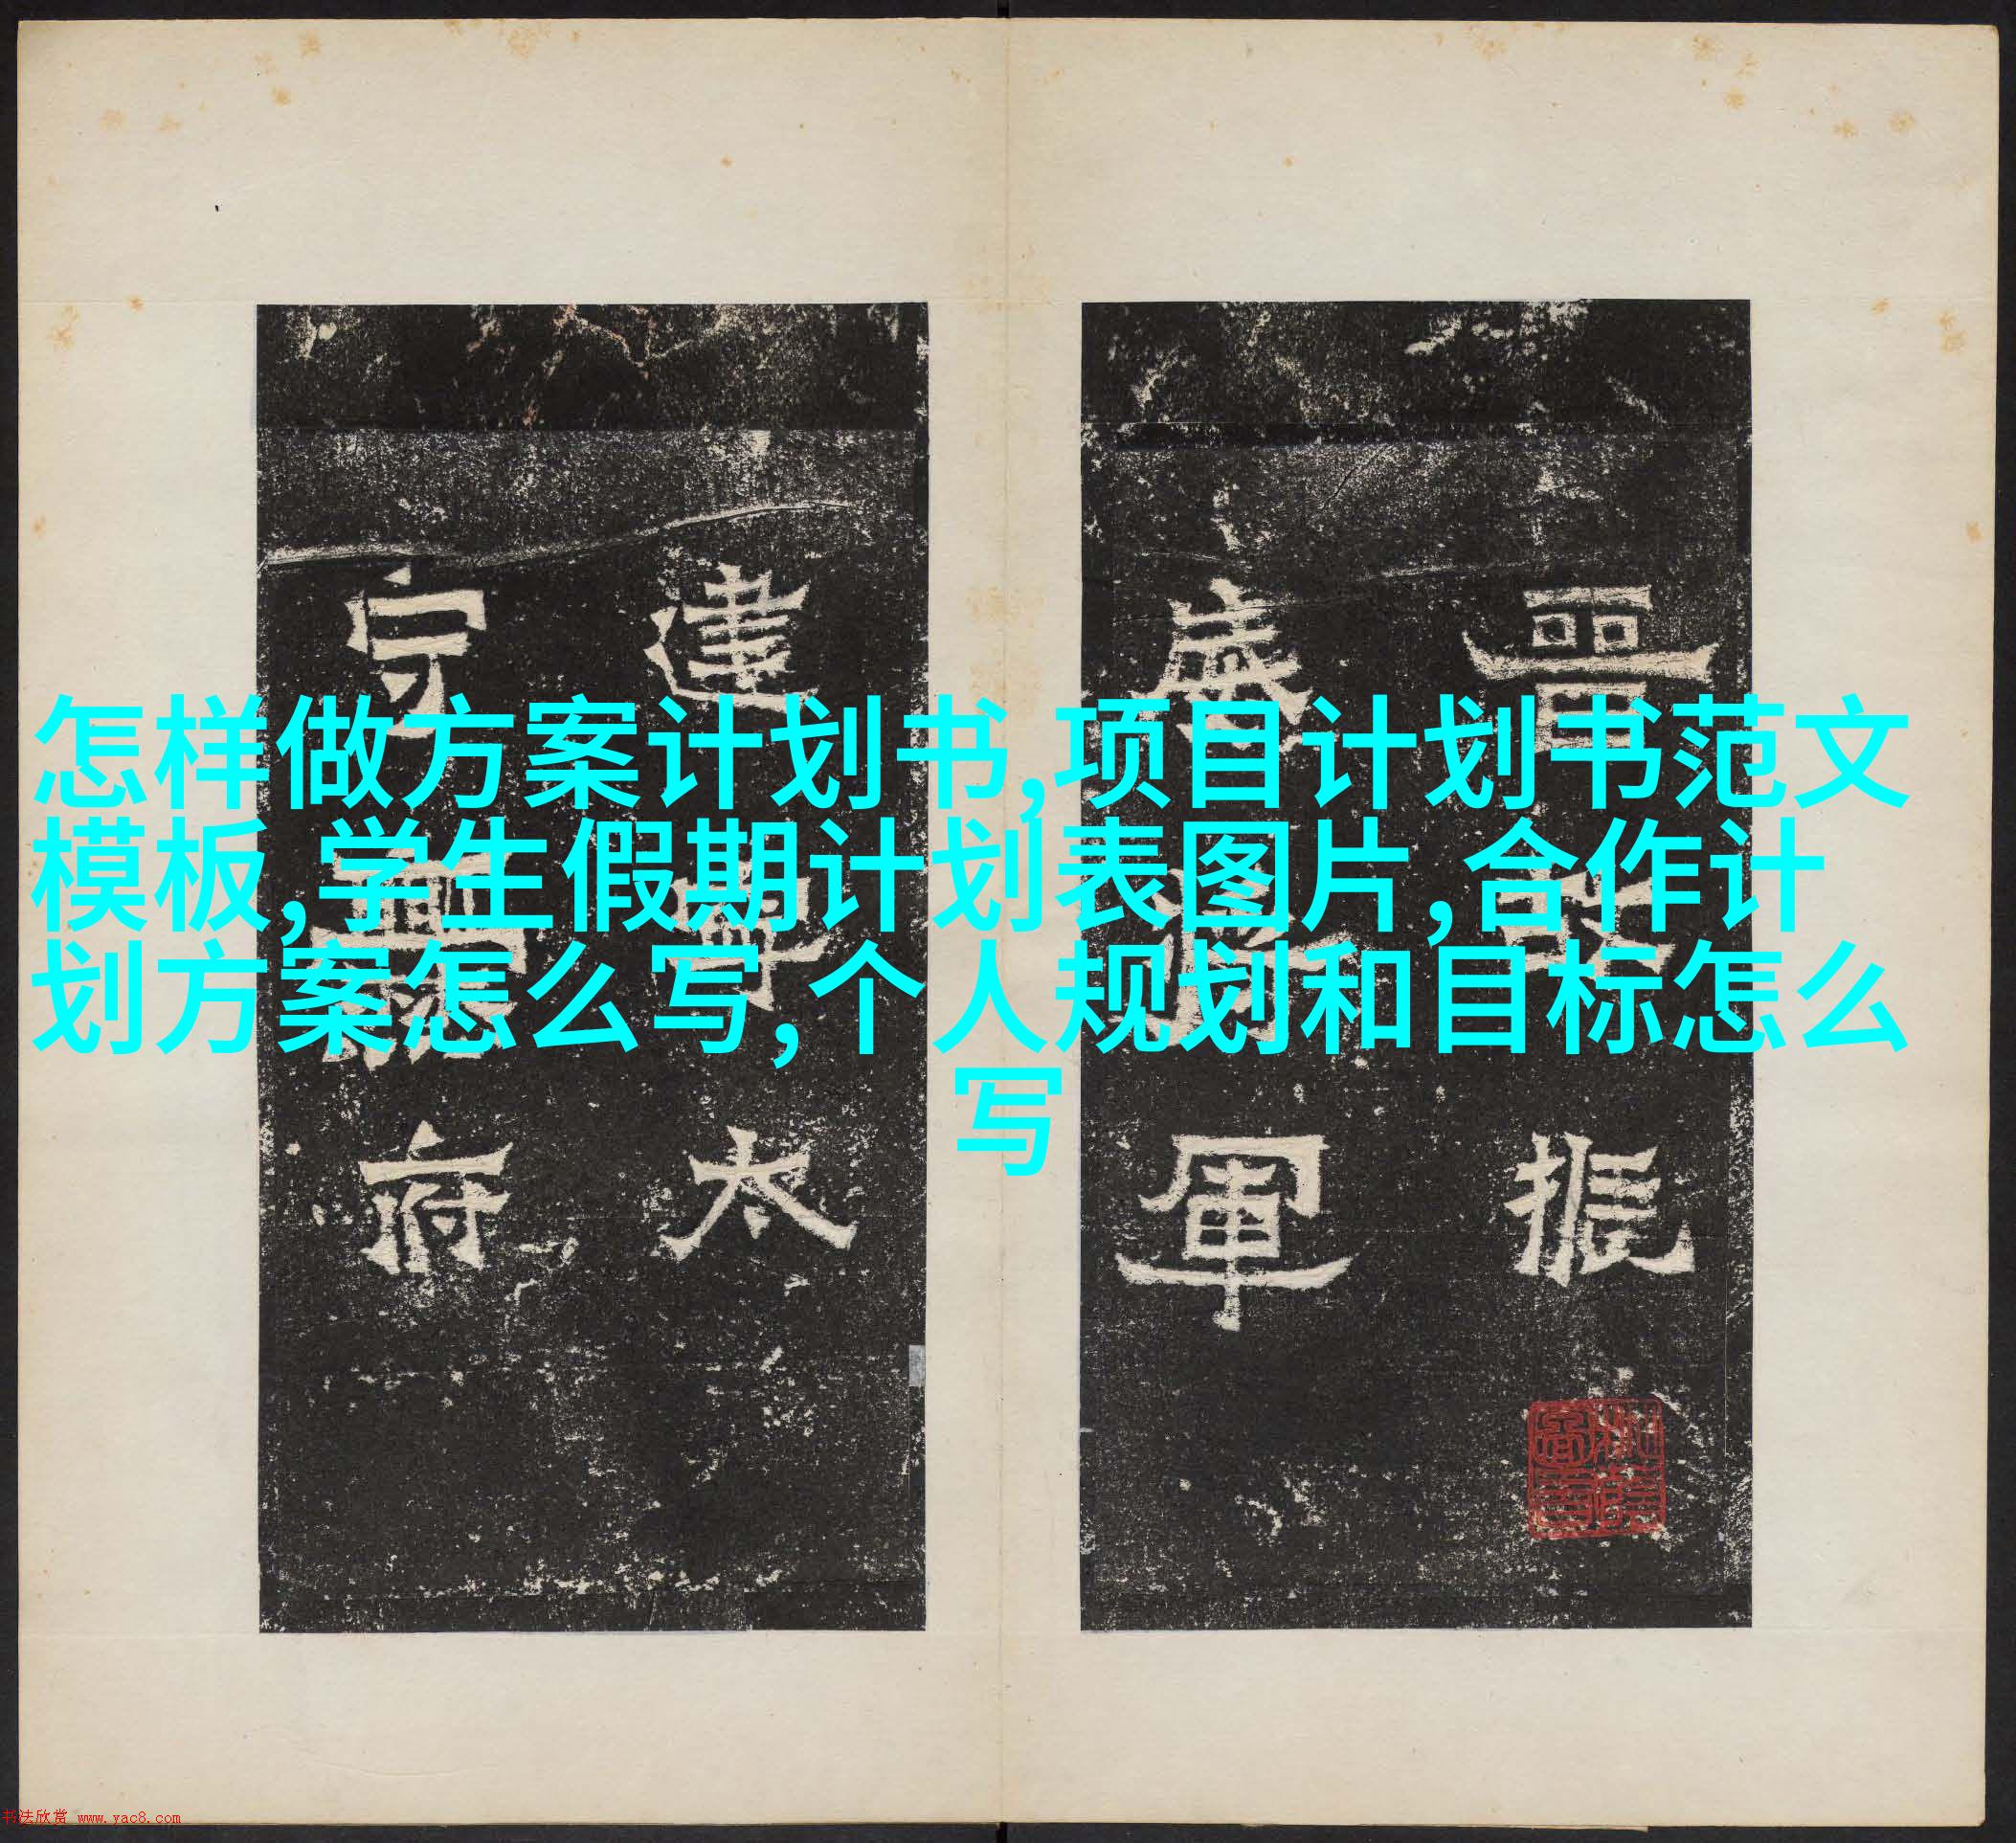 怎样做方案计划书,项目计划书范文
模板,学生假期计划表图片,合作计
划方案怎么写,个人规划和目标怎么
写
晋
振
威
軍
建
太
守
府
书法欣赏 www.yac8.com